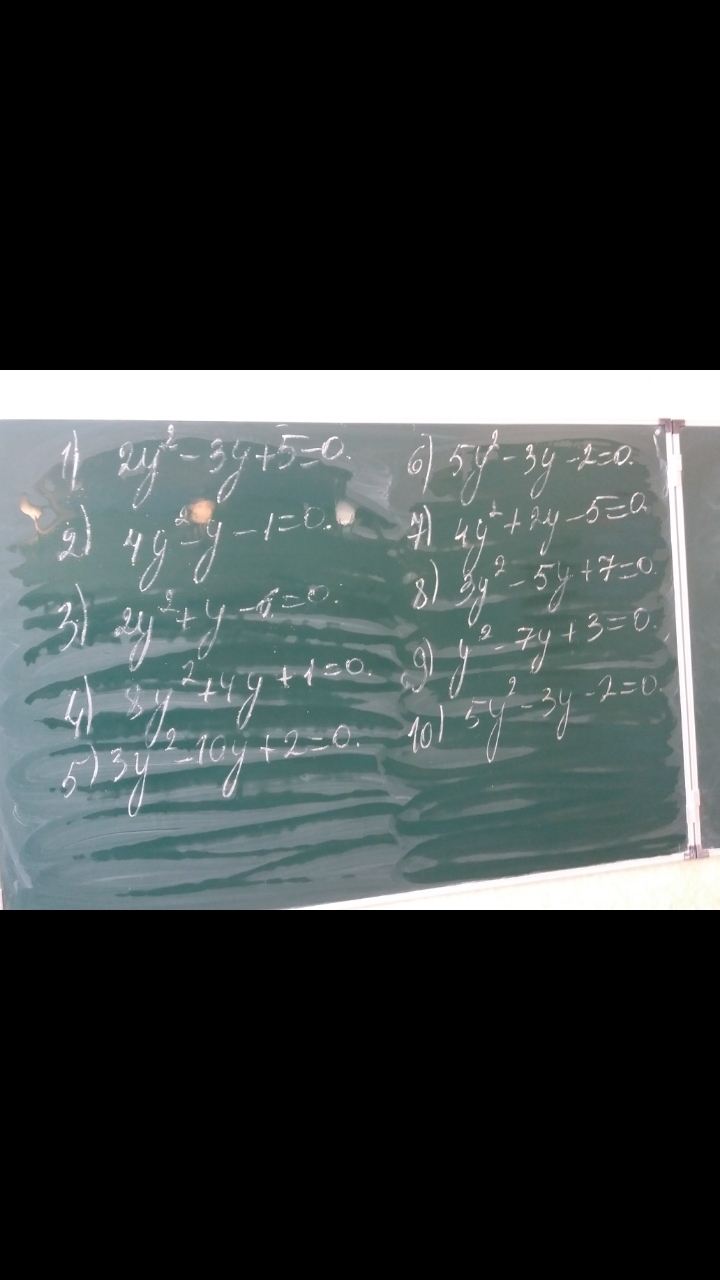 1) 2y² - 3y + 5 = 0.
2) 4y² - y - 1 = 0.
3) 2y² + y - 1 = 0.
4) 8y² + 4y + 1 = 0.
5) 3y² - 10y + 2 = 0.
6) 5y² - 3y - 2 = 0.
7) 4y² + 2y - 5 = 0
8) 3y² - 5y + 7 = 0.
9) y² - 7y + 3 = 0.
10) 5y² - 3y - 2 = 0.